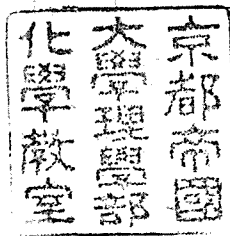 京都帝國
大學理學部
化學教室